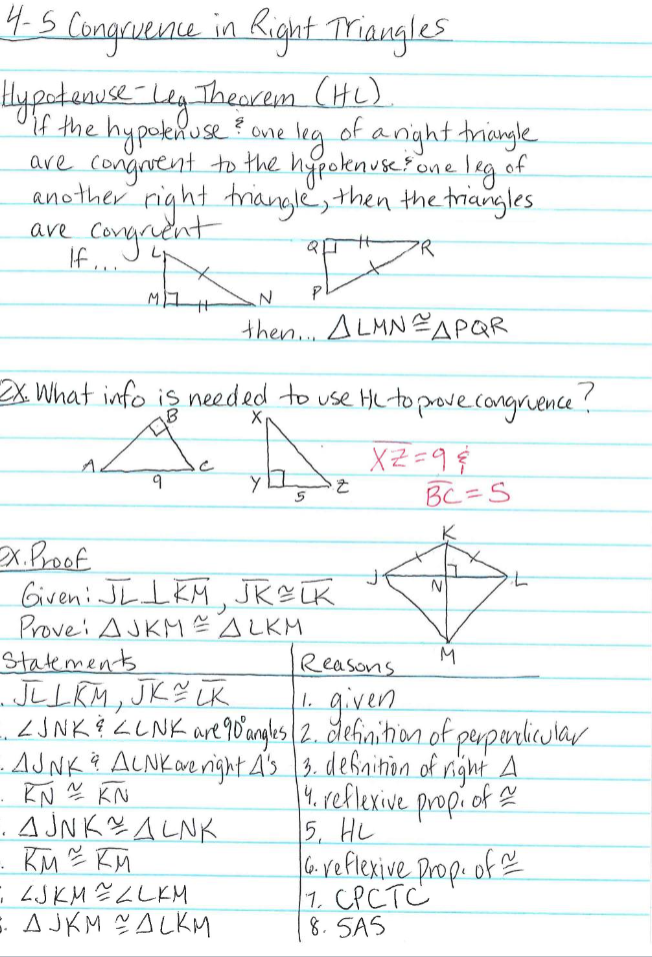 4-5 Congruence in Right Triangles
Hypotenuse-Leg Theorem (HL)
If the hypotenuse & one leg of a right triangle
are congruent to the hypotenuse & one leg of
another right triangle, then the triangles
are congruent
If...
L
M
N
Q
R
P
then... △LMN ≅ △PQR
Ex. What info is needed to use HL to prove congruence?
B
A
C
9
X
Y
Z
5
XZ = 9 &
BC = 5
Ex. Proof
Given: JL ⊥ KM, JK ≅ LK
Prove: △JKM ≅ △LKM
K
J
N
L
M
Statements | Reasons
. JL ⊥ KM, JK ≅ LK | 1. given
. ∠JNK & ∠LNK are 90° angles | 2. definition of perpendicular
. △JNK & △LNK are right △'s | 3. definition of right △
KN ≅ KN | 4. reflexive prop. of ≅
. △JNK ≅ △LNK | 5. HL
. KM ≅ KM | 6. reflexive prop. of ≅
. ∠JKM ≅ ∠LKM | 7. CPCTC
. △JKM ≅ △LKM | 8. SAS